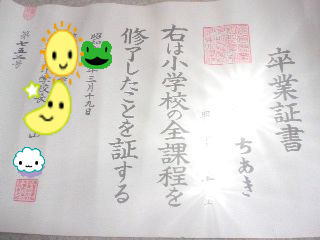 卒業証書
ちあき
右は小学校の全課程を
修了したことを証する
年三月十九日
学校長
第七五二号